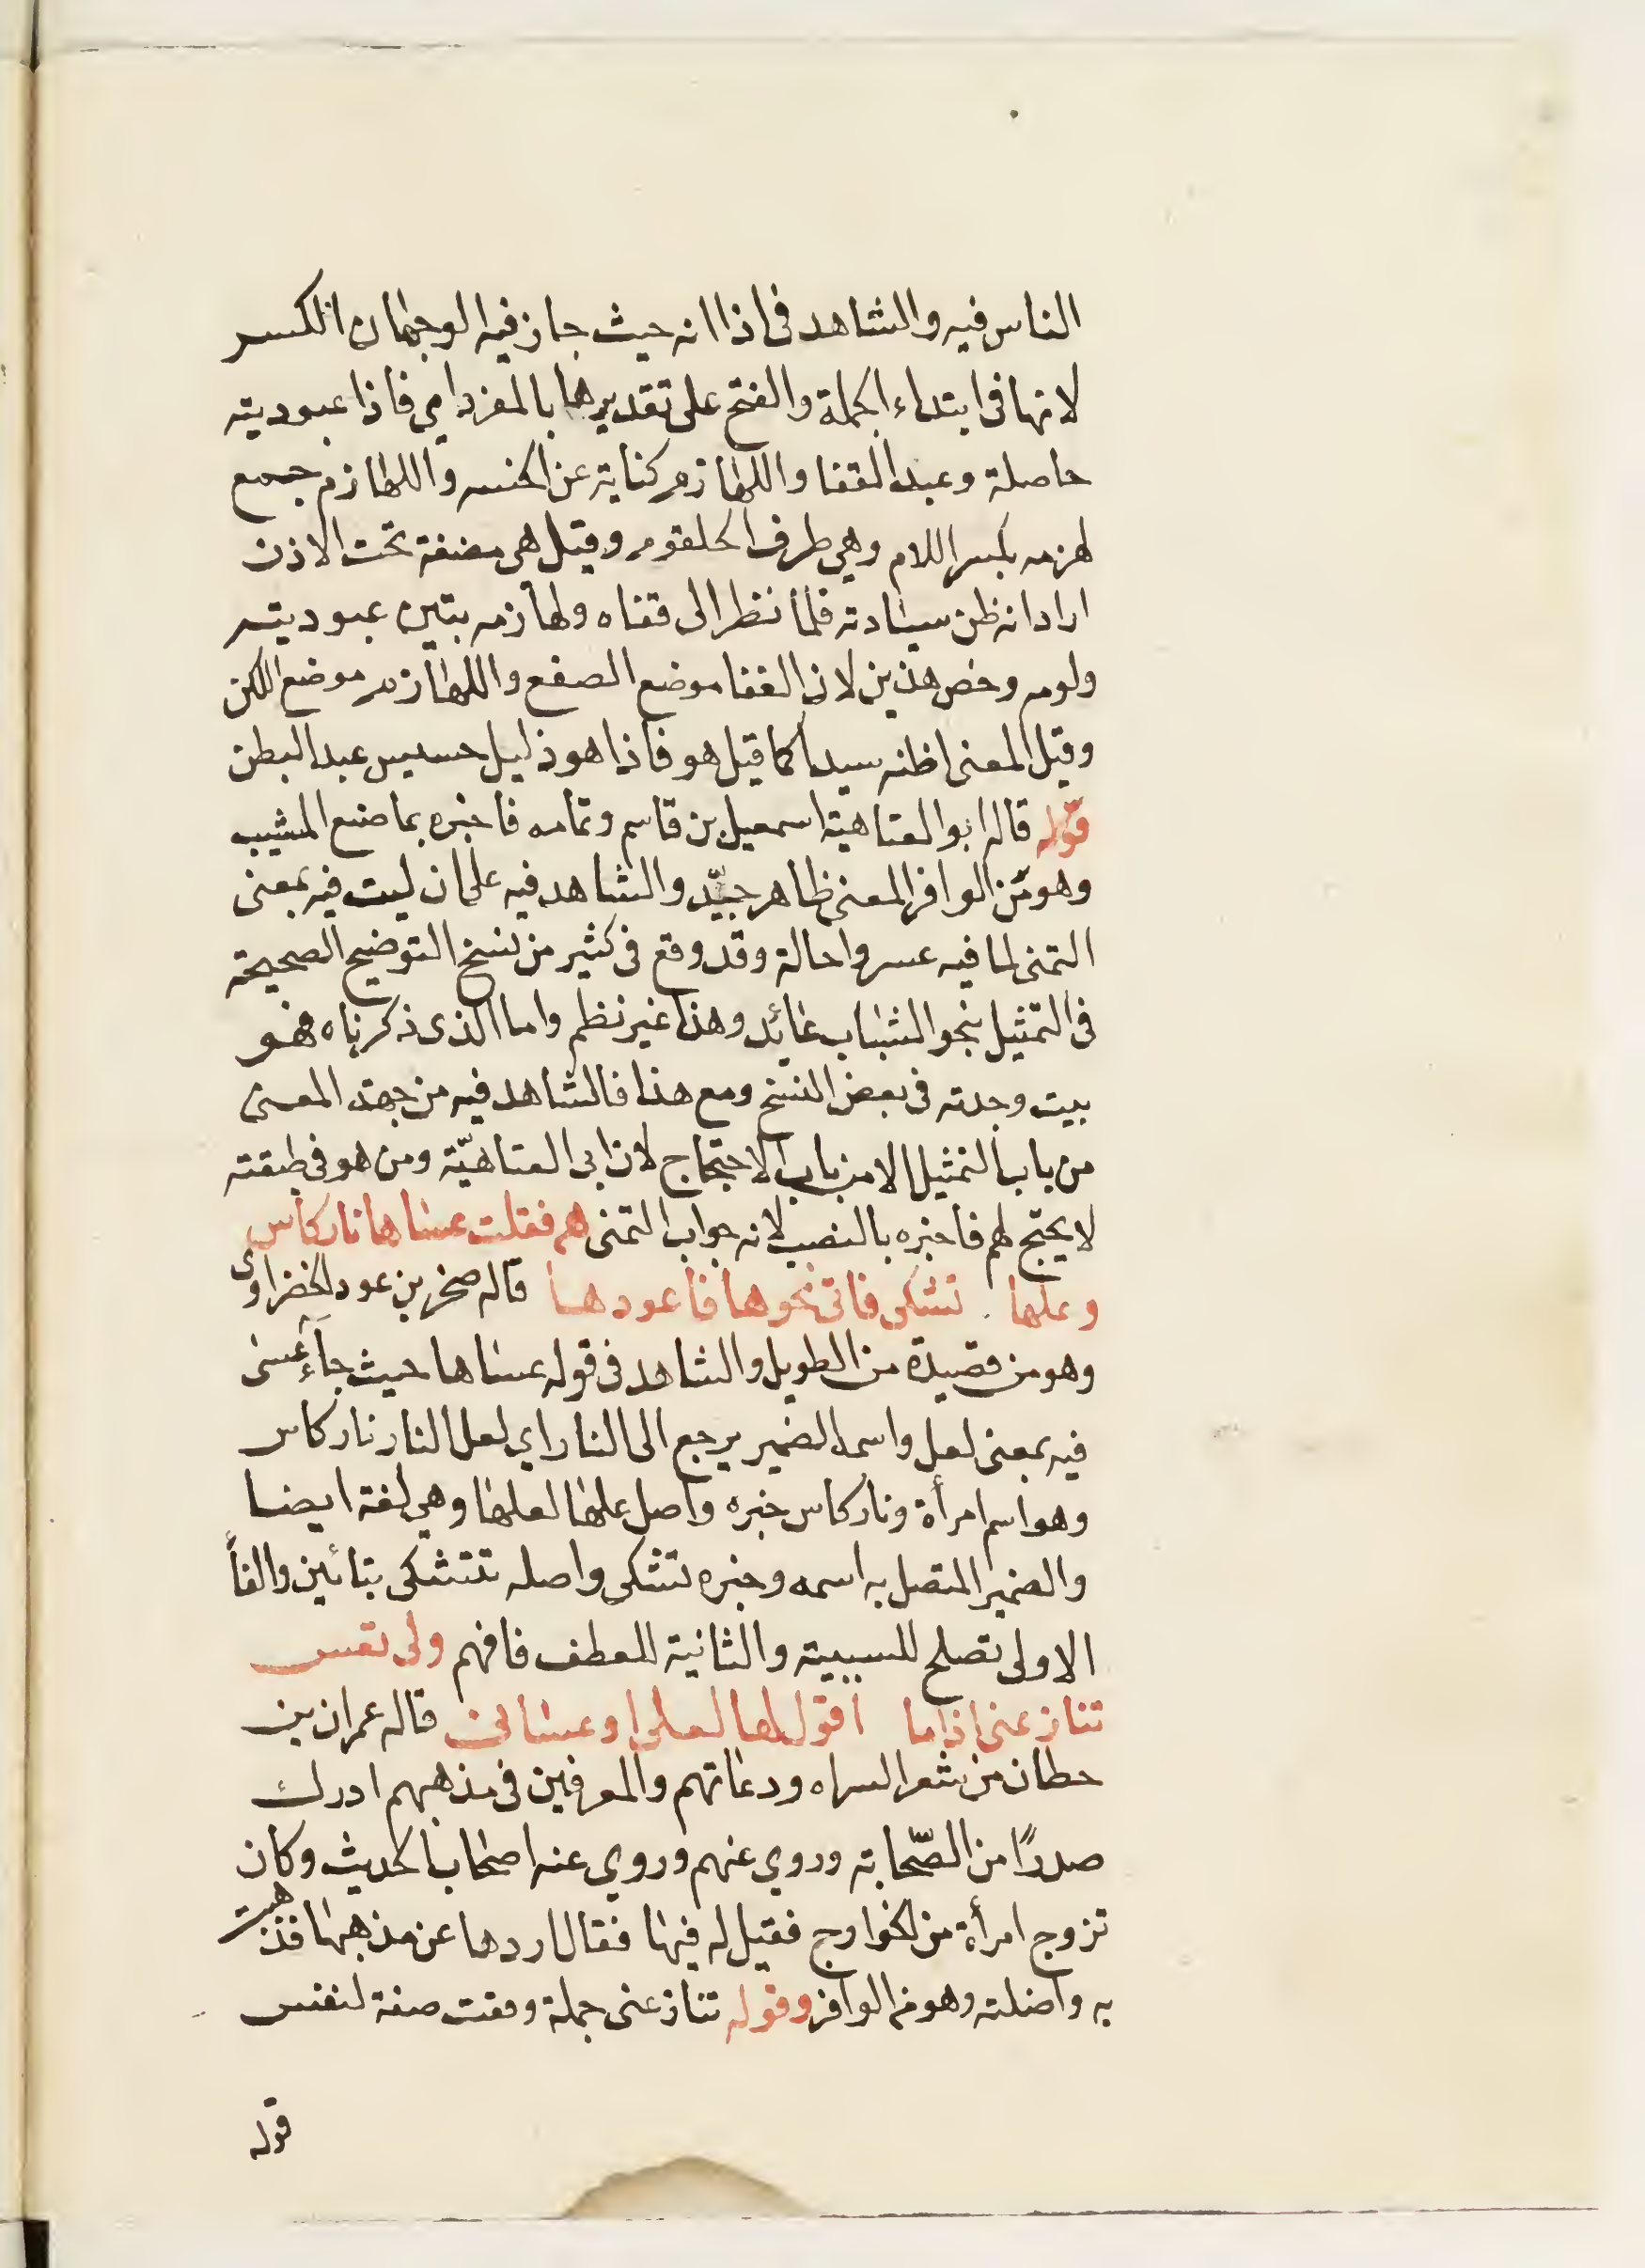 الناس فيه والشاهد في اذا انه حيث جاز فيه الوجهان الكسر
لانها في ابتداء الجملة والفتح على تقديرها بالمفرد اي فاذا عبوديته
حاصلة وعبد القفا واللهازم كناية عن الخسه واللهازم جمع
لهزمه بكسر اللام وهي طرف الحلقوم وقيل هي مضغة تحت الاذن
اراد انه ظن سيادته فلما نظر الى قفاه ولهازمه تبين عبوديته
ولومه وخص هذين لان القفا موضع الصفع واللهازم موضع اللكز
وقيل المعنى اظنه سيدا كما قيل هو فاذا هو ذليل خسيس عبد البطن
قوله قاله ابو العتاهية اسمعيل بن قاسم وتمامه فاخبره بما صنع المشيب
وهو من الوافر المعنى ظاهر جيّد والشاهد فيه على ان ليت فيه بمعنى
التمنى لما فيه عسر واحالة وقد وقع في كثير من نسخ التوضيح الصحيحة
في التمثيل بنحو الشباب عائد وهذا غير نظم واما الذى ذكرناه فهو
بيت وجدته في بعض النسخ ومع هذا فالشاهد فيه من جهة المعنى
من باب التمثيل لا من باب الاحتجاج لان ابى العتاهيّة ومن هو في طبقته
لا يحتج لهم فاخبره بالنصب لانه جواب التمنى هم فقلت عساها نار كاس
وعلها تشكى فاتى نحوها فاعودها قاله صخر بن عود الخضراوى
وهو من قصيدة من الطويل والشاهد في قوله عساها حيث جاء عسى
فيه بمعنى لعل واسمه الضمير يرجع الى النار اي لعل النار نار كاس
وهو اسم امرأة ونار كاس خبره واصل علها لعلها وهي لغة ايضا
والضمير المتصل به اسمه وخبره تشكى واصله تتشكى بتائين والفأ
الاولى تصلح للسببية والثانية للعطف فافهم ولى نفس
تنازعنى اذا ما اقول لها لعلى او عسانى قاله عمران بن
حطان من شعر السراه ودعاتهم والمعرفين في مذهبهم ادرك
صدرًا من الصّحابة وروي عنهم وروي عنه اصحاب الحديث وكان
تزوج امرأة من الخوارج فقيل له فيها فقال اردها عن مذهبها فذهبت
به واضلته وهو من الوافر وقوله تنازعنى جملة وقعت صفة لنفس
قوله